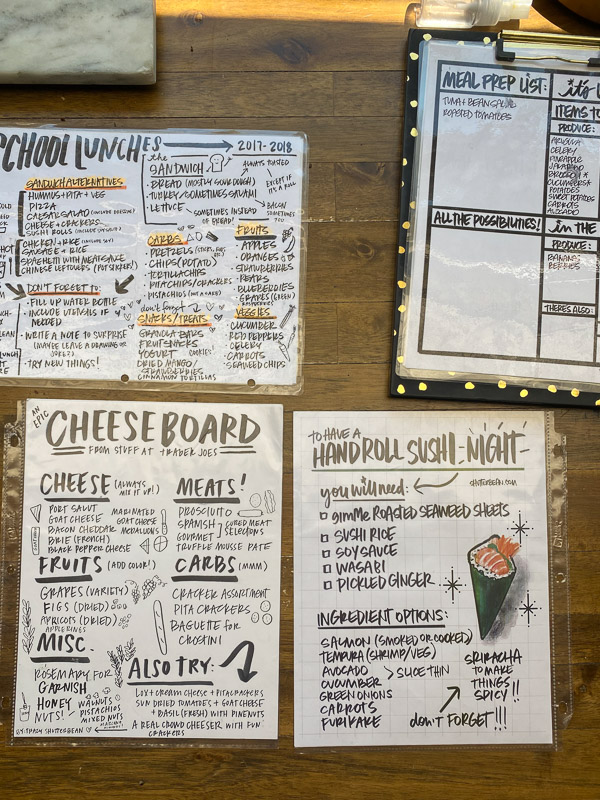 SCHOOL LUNCHES → 2017-2018
SANDWICH ALTERNATIVES
HUMMUS + PITA + VEG
PIZZA
CAESAR SALAD
CHEESE + CRACKERS
SUSHI ROLLS (INCLUDE
CHICKEN + RICE (INCLUDE SOY)
SAUSAGE + RICE
SPAGHETTI WITH MEAT SAUCE
CHINESE LEFTOVERS (POTSTICKERS!)
DON'T FORGET TO:
- FILL UP WATER BOTTLE
- INCLUDE UTENSILS IF
NEEDED
- WRITE A NOTE TO SURPRISE
(MAYBE LEAVE A DRAWING OR
JOKE?)
- TRY NEW THINGS!
the
SANDWICH
- BREAD (MOSTLY SOURDOUGH)
- TURKEY/SOMETIMES SALAMI
- LETTUCE
SOMETIMES INSTEAD
OF BREAD!
ALWAYS TOASTED
EXCEPT IF
IT'S A ROLL
BACON
SOMETIMES
TOO
CARBS
- PRETZELS
- CHIPS (POTATO)
- TORTILLA CHIPS
- PITA CHIPS/CRACKERS
- PISTACHIOS (NOT A CARB)
don't forget
SNACKS/TREATS
GRANOLA BARS
FRUIT SNACKS
YOGURT COOKIES
DRIED MANGO/
STRAWBERRIES
CINNAMON TORTILLAS
FRUITS
- APPLES
- ORANGES
- STRAWBERRIES
- PEARS
- BLUEBERRIES
- GRAPES (GREEN)
VEGGIES
- CUCUMBER
- RED PEPPERS
- CELERY
- CARROTS
- SEAWEED CHIPS
MEAL PREP LIST:
TUNA + BEAN SALAD
ROASTED TOMATOES
it's
ITEMS TO
PRODUCE:
ARUGULA
CELERY
PINEAPPLE
JALAPEÑO
BROCCOLI
CUCUMBERS
POTATOES
SWEET POTATOES
CARROTS
AVOCADO
ALL THE POSSIBILITIES!
in the
PRODUCE:
BANANAS
BERRIES
THERES ALSO:
AN
EPIC
CHEESEBOARD
FROM STUFF AT TRADER JOES
CHEESE (ALWAYS
MIX IT UP!)
PORT SALUT
GOAT CHEESE
BACON CHEDDAR
BRIE (FRENCH)
BLACK PEPPER CHEESE
MARINATED
GOAT CHEESE
MEDALLIONS
MEATS!
PROSCIUTTO
SPANISH
GOURMET
CURED MEAT
SELECTIONS
TRUFFLE MOUSSE PATE
FRUITS (ADD COLOR!)
GRAPES (VARIETY)
FIGS (DRIED)
APRICOTS (DRIED)
APPLE RINGS
CARBS (MMM)
CRACKER ASSORTMENT
PITA CRACKERS
BAGUETTE FOR
CROSTINI
MISC.
ROSEMARY FOR
GARNISH
HONEY
NUTS!
WALNUTS
PISTACHIOS
MIXED NUTS
ALSO TRY:
LOX + CREAM CHEESE + PITA CRACKERS
SUN DRIED TOMATOES + GOAT CHEESE
+ BASIL (FRESH) WITH PINENUTS
A REAL CROWD CHEESER WITH FUN
CRACKERS
BY: TRACY SHUTTERBEAN
TO HAVE A
HANDROLL SUSHI-NIGHT-
you will need:
SHUTTERBEAN.COM
□ GIMME ROASTED SEAWEED SHEETS
□ SUSHI RICE
□ SOY SAUCE
□ WASABI
□ PICKLED GINGER
INGREDIENT OPTIONS:
SALMON (SMOKED OR COOKED)
TEMPURA (SHRIMP/VEG)
AVOCADO
CUCUMBER
> SLICE THIN
GREEN ONIONS
CARROTS
FURIKAKE
SRIRACHA
TO MAKE
THINGS
SPICY!!
don't FORGET!!!